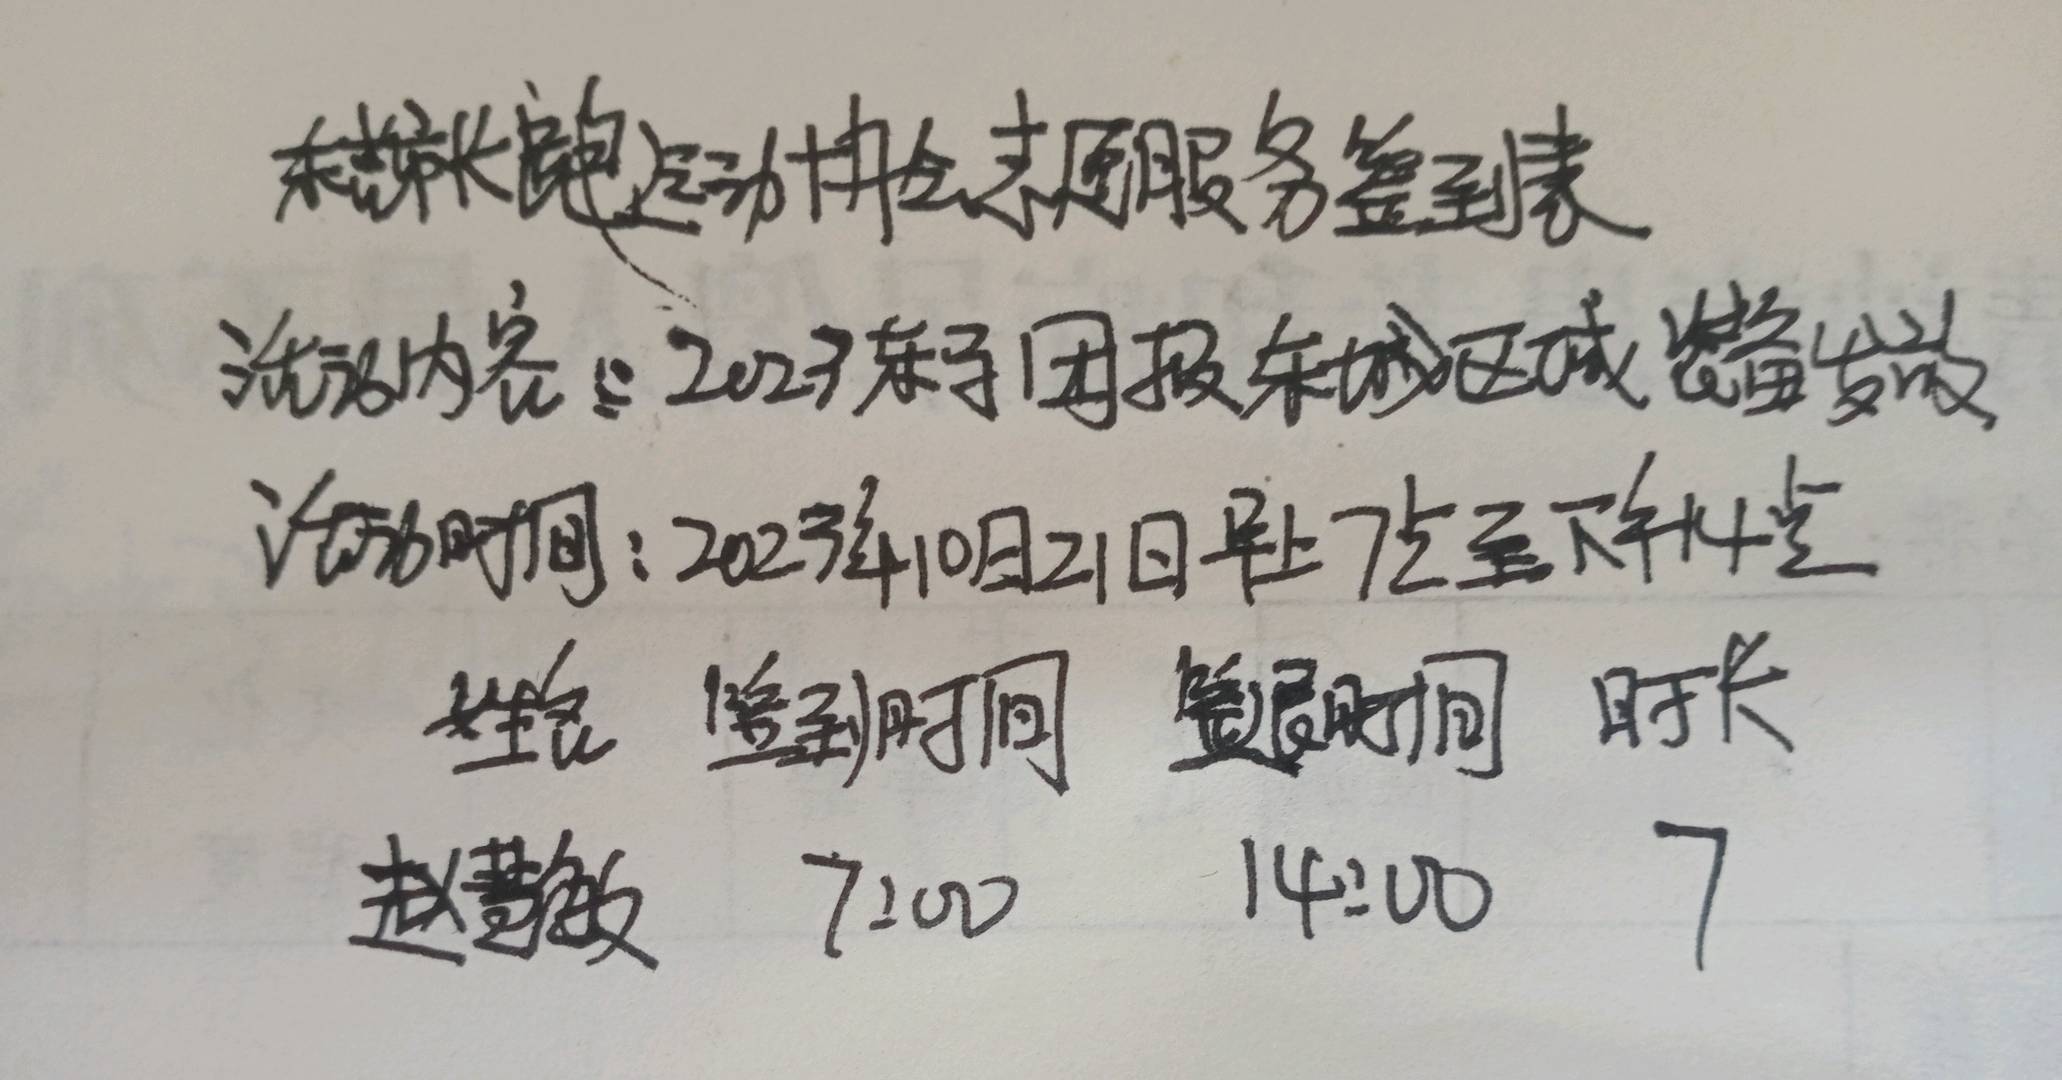 东莞市长跑运动协会志愿服务签到表
活动内容：2023东马团报东城区域装备发放
活动时间：2023年10月21日早上7点至下午14点
姓名 签到时间 签退时间 时长
赵慧敏 7:00 14:00 7